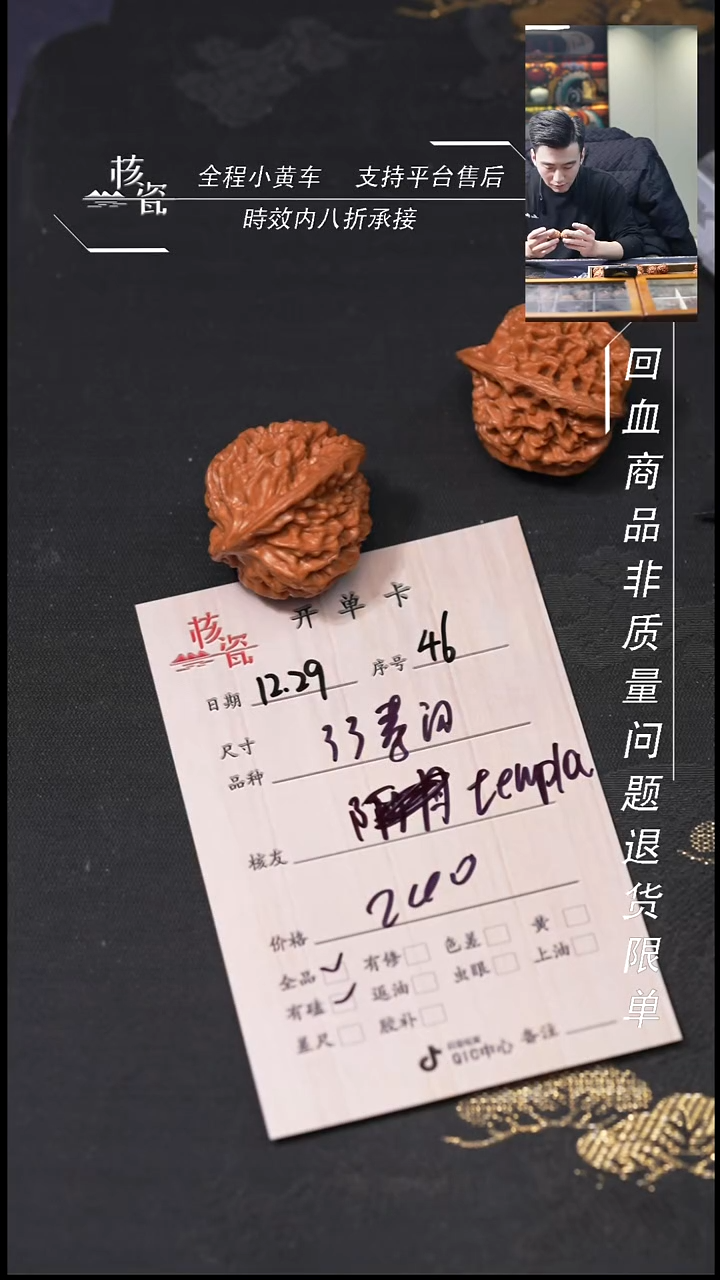 核瓷
全程小黄车 支持平台售后
時效内八折承接
回血商品非质量问题退货限单
核瓷
开单卡
日期 12.29 序号 46
尺寸 33
品种
核友 templa
价格 240
全品 有修 色差 黄
有磕 返油 虫眼 上油
差尺 胶补
QIC中心 备注